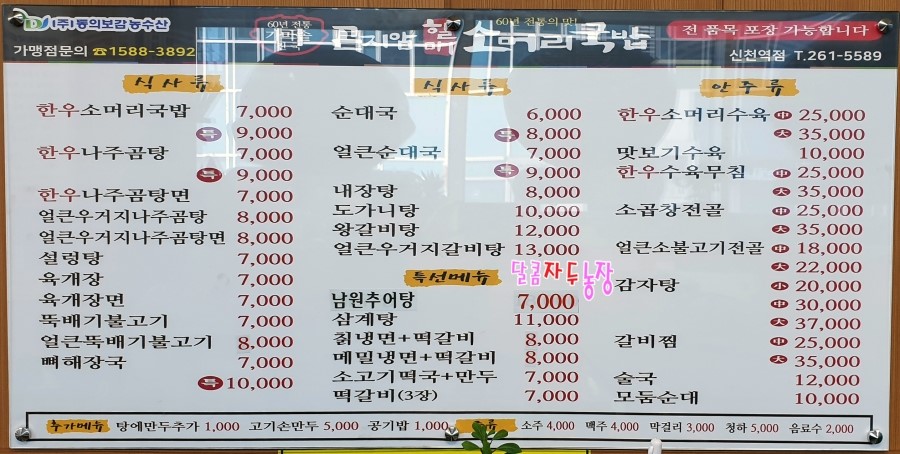 (주)동의보감농수산
가맹점문의 ☎1588-3892
60년 전통
60년 전통의 맛!
할매
소머리국밥
전 품목 포장 가능합니다
신천역점 T.261-5589
식사류
한우소머리국밥 7,000
특 9,000
한우나주곰탕 7,000
특 9,000
한우나주곰탕면 7,000
얼큰우거지나주곰탕 8,000
얼큰우거지나주곰탕면 8,000
설렁탕 7,000
육개장 7,000
육개장면 7,000
뚝배기불고기 7,000
얼큰뚝배기불고기 8,000
뼈해장국 7,000
특 10,000
식사류
순대국 6,000
특 8,000
얼큰순대국 7,000
특 9,000
내장탕 8,000
도가니탕 10,000
왕갈비탕 12,000
얼큰우거지갈비탕 13,000
특선메뉴
달콤자두농장
남원추어탕 7,000
삼계탕 11,000
칡냉면+떡갈비 8,000
메밀냉면+떡갈비 8,000
소고기떡국+만두 7,000
떡갈비(3장) 7,000
안주류
한우소머리수육 中 25,000
大 35,000
맛보기수육 10,000
한우수육무침 中 25,000
大 35,000
소곱창전골 中 25,000
大 35,000
얼큰소불고기전골 中 18,000
大 22,000
감자탕 小 20,000
中 30,000
大 37,000
갈비찜 中 25,000
大 35,000
술국 12,000
모둠순대 10,000
추가메뉴 탕에만두추가 1,000 고기손만두 5,000 공기밥 1,000 소주 4,000 맥주 4,000 막걸리 3,000 청하 5,000 음료수 2,000